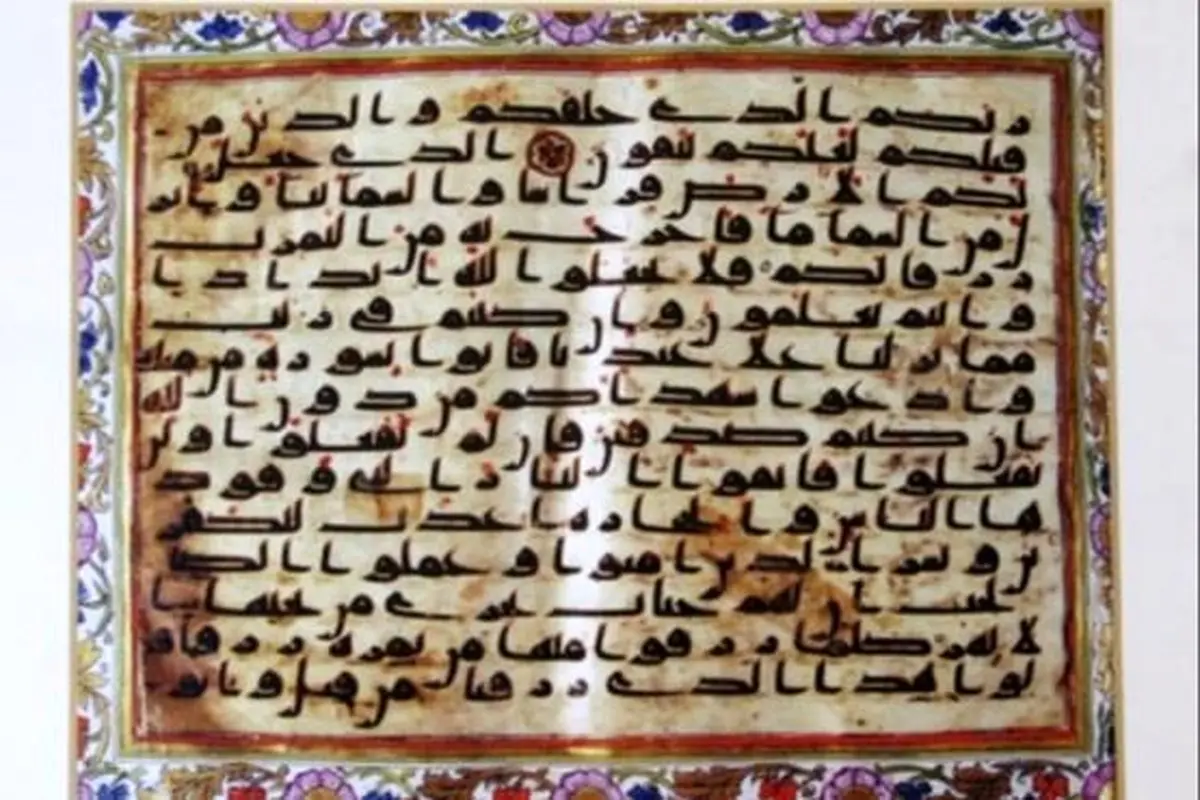 ربكم الذي خلقكم والذين من
قبلكم لعلكم تتقون الذي جعل
لكم الارض فرشا والسما بنا وانز
ل من السما ما فاخرج به من الثمرت
رزقا لكم فلا تجعلوا لله اندادا
وانتم تعلمون وان كنتم في ريب
مما نزلنا على عبدنا فاتوا بسورة من مثله
وادعوا شهداكم من دون الله
ان كنتم صدقين فان لم تفعلوا ولن
تفعلوا فاتقوا النار التي وقود
ها الناس والحجارة اعدت للكفر
ين وبشر الذين امنوا وعملوا الصا
لحت ان لهم جنات تجري من تحتها ا
لانهر كلما رزقوا منها من ثمرة رزقا قا
لوا هذا الذي رزقنا من قبل واتو